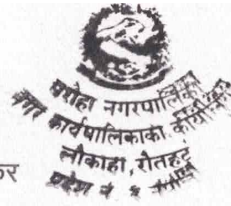 परोहा नगरपालिका
नगर कार्यपालिकाको कार्यालय
लौकाहा, रौतहट
प्रदेश नं २ नेपाल
कर